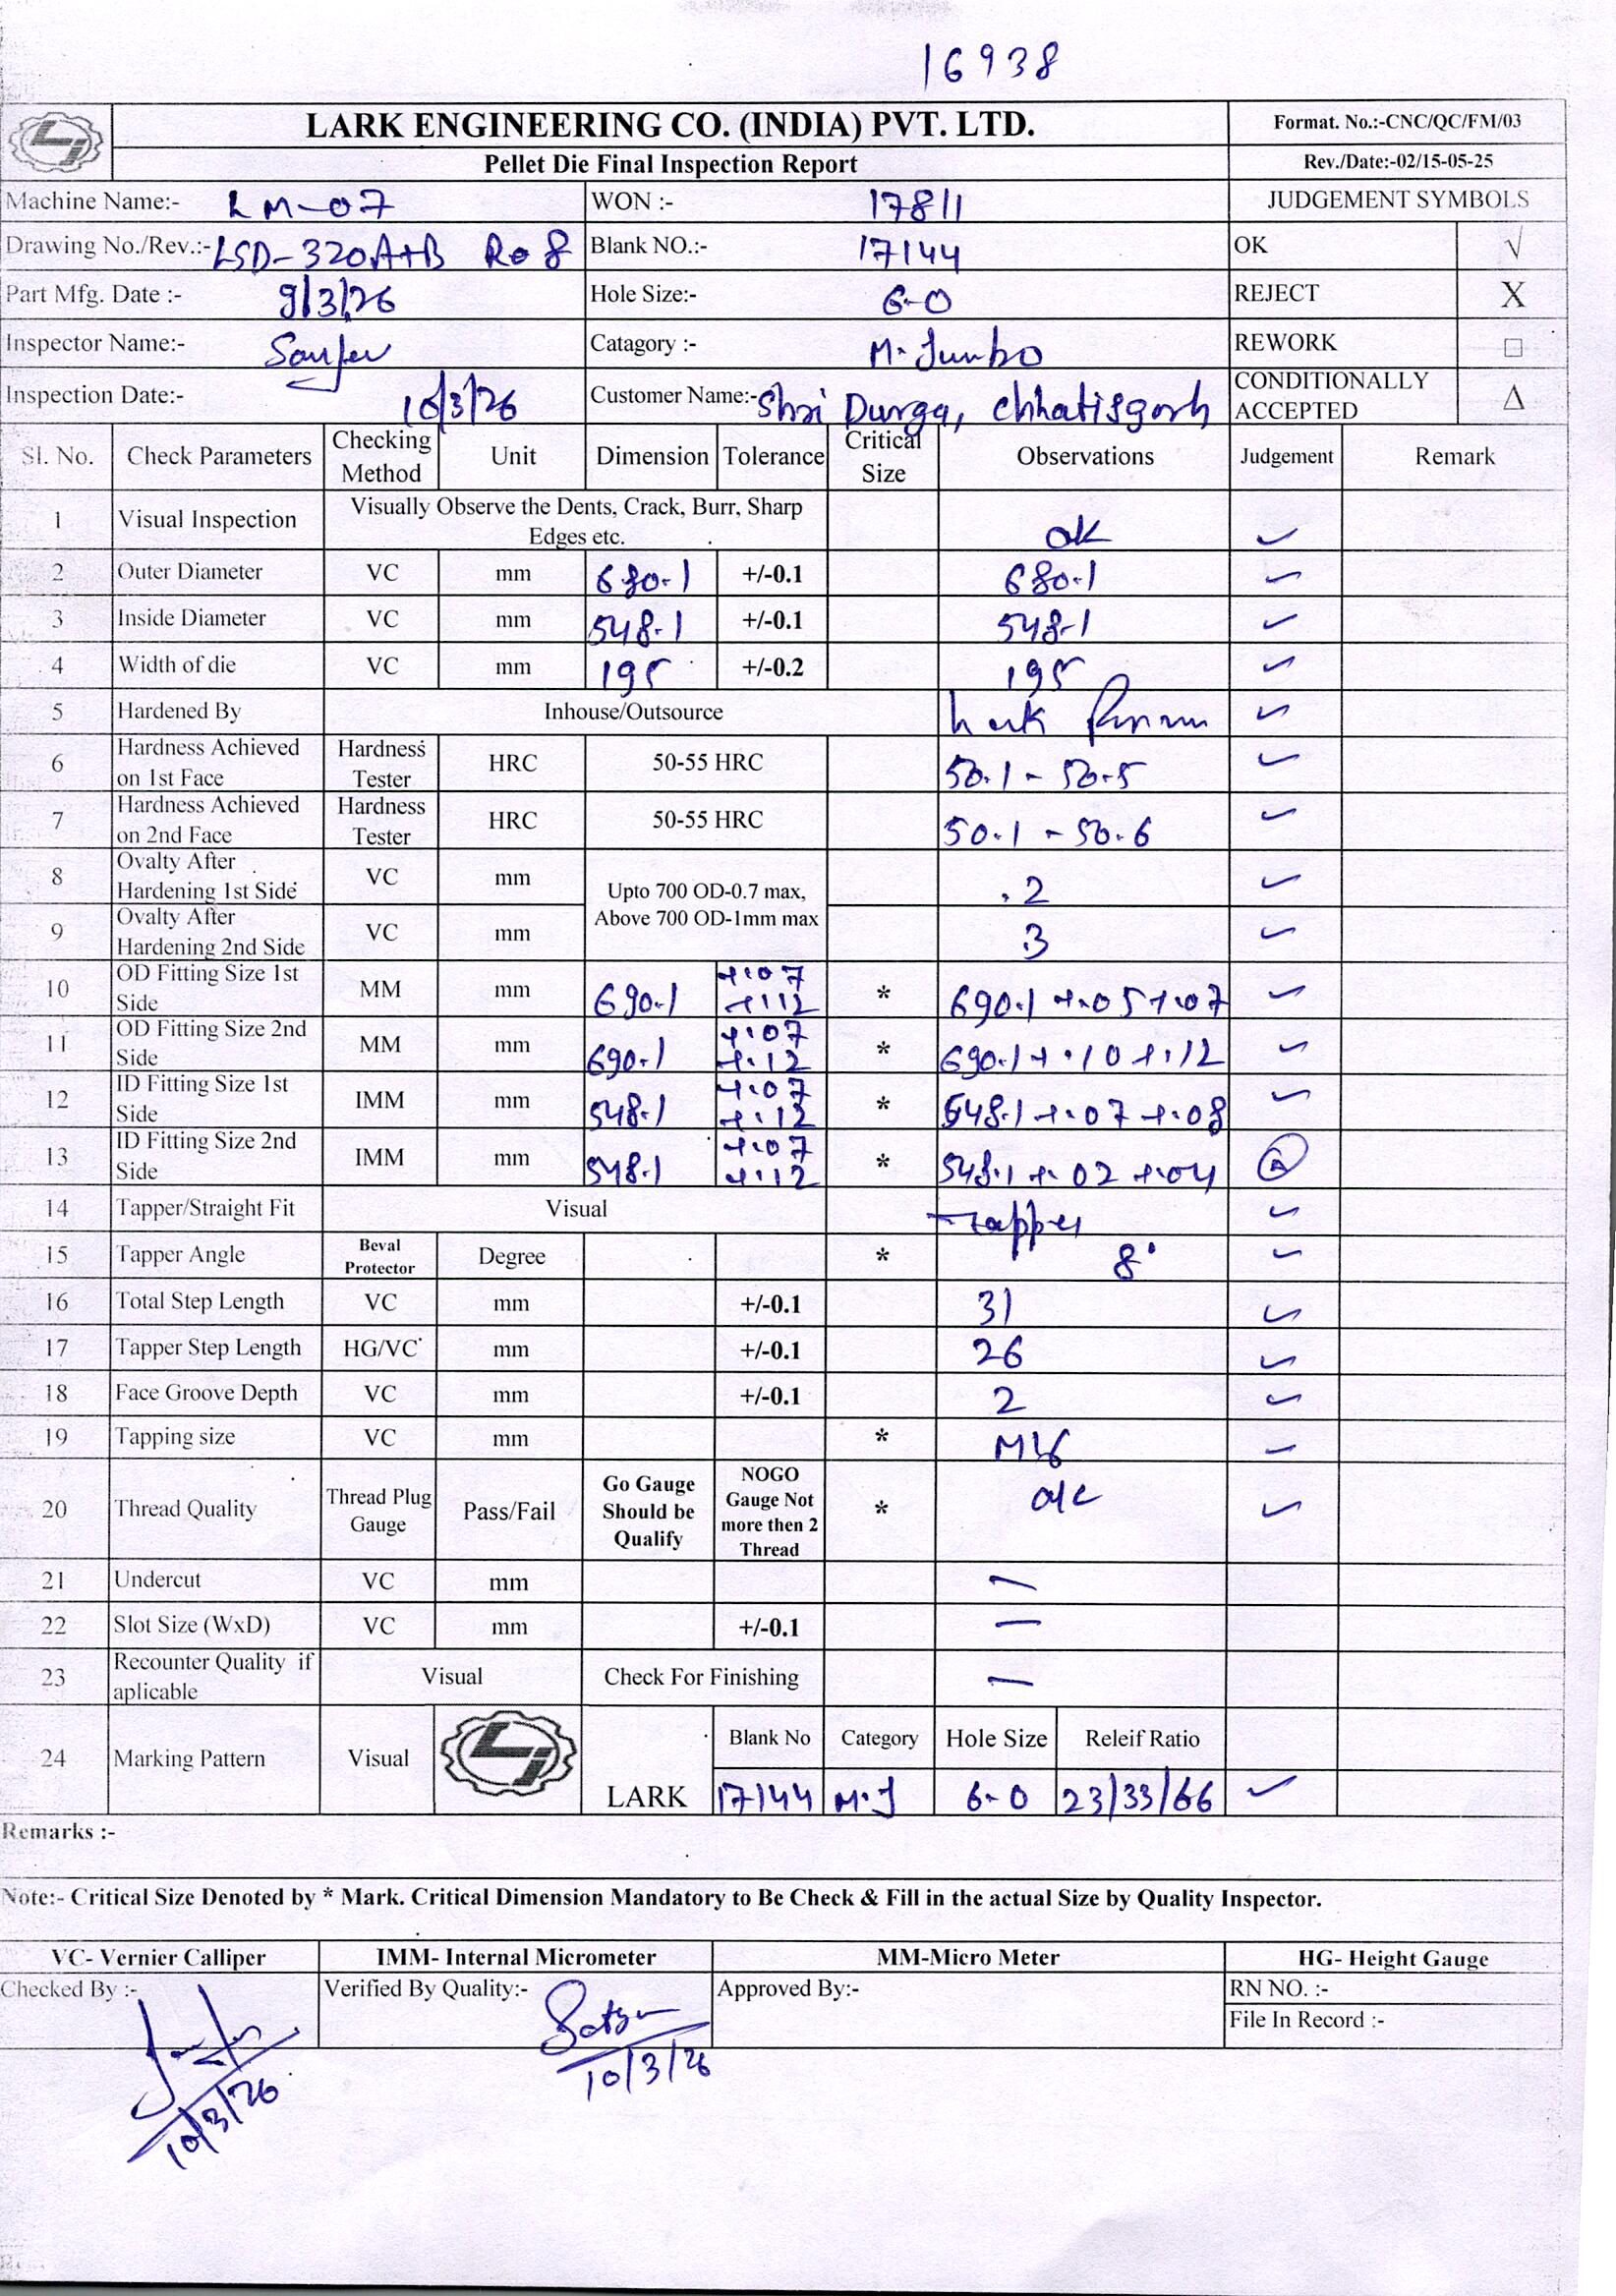 16938
LARK ENGINEERING CO. (INDIA) PVT. LTD.
Format. No.:-CNC/QC/FM/03
Pellet Die Final Inspection Report
Rev./Date:-02/15-05-25
Machine Name:- LM-07 WON :- 17811 JUDGEMENT SYMBOLS
Drawing No./Rev.:- LSD-320A+B R08 Blank NO.:- 17144 OK √
Part Mfg. Date :- 9/3/26 Hole Size:- 6-0 REJECT X
Inspector Name:- Catagory :- M. Jumbo REWORK □
Inspection Date:- 10/3/26 Customer Name:- Shri Durga, Chhatisgarh CONDITIONALLY ACCEPTED Δ
Sl. No. Check Parameters Checking Method Unit Dimension Tolerance Critical Size Observations Judgement Remark
1 Visual Inspection Visually Observe the Dents, Crack, Burr, Sharp Edges etc. ok ✓
2 Outer Diameter VC mm 680.1 +/-0.1 680.1 ✓
3 Inside Diameter VC mm 548.1 +/-0.1 548.1 ✓
4 Width of die VC mm 195 +/-0.2 195 ✓
5 Hardened By Inhouse/Outsource Lark ✓
6 Hardness Achieved on 1st Face Hardness Tester HRC 50-55 HRC 50.1 - 50.5 ✓
7 Hardness Achieved on 2nd Face Hardness Tester HRC 50-55 HRC 50.1 - 50.6 ✓
8 Ovalty After Hardening 1st Side VC mm Upto 700 OD-0.7 max, Above 700 OD-1mm max .2 ✓
9 Ovalty After Hardening 2nd Side VC mm .3 ✓
10 OD Fitting Size 1st Side MM mm 690.1 +.07 +.12 * 690.1 +.05 +.07 ✓
11 OD Fitting Size 2nd Side MM mm 690.1 +.07 +.12 * 690.1 + .10 +.12 ✓
12 ID Fitting Size 1st Side IMM mm 548.1 +.07 +.12 * 548.1 +.07 +.08 ✓
13 ID Fitting Size 2nd Side IMM mm 548.1 +.07 +.12 * 548.1 +.02 +.04
14 Tapper/Straight Fit Visual Tapper ✓
15 Tapper Angle Beval Protector Degree * 8° ✓
16 Total Step Length VC mm +/-0.1 31 ✓
17 Tapper Step Length HG/VC mm +/-0.1 26 ✓
18 Face Groove Depth VC mm +/-0.1 2 ✓
19 Tapping size VC mm * M16 ✓
20 Thread Quality Thread Plug Gauge Pass/Fail Go Gauge Should be Qualify NOGO Gauge Not more then 2 Thread * ok ✓
21 Undercut VC mm —
22 Slot Size (WxD) VC mm +/-0.1 —
23 Recounter Quality if aplicable Visual Check For Finishing —
24 Marking Pattern Visual LARK Blank No Category Hole Size Releif Ratio
17144 M.J 6-0 23/33/66 ✓
Remarks :-
Note:- Critical Size Denoted by * Mark. Critical Dimension Mandatory to Be Check & Fill in the actual Size by Quality Inspector.
VC- Vernier Calliper IMM- Internal Micrometer MM-Micro Meter HG- Height Gauge
Checked By :- Verified By Quality:- Approved By:- RN NO. :-
File In Record :-
10/3/26 10/3/26